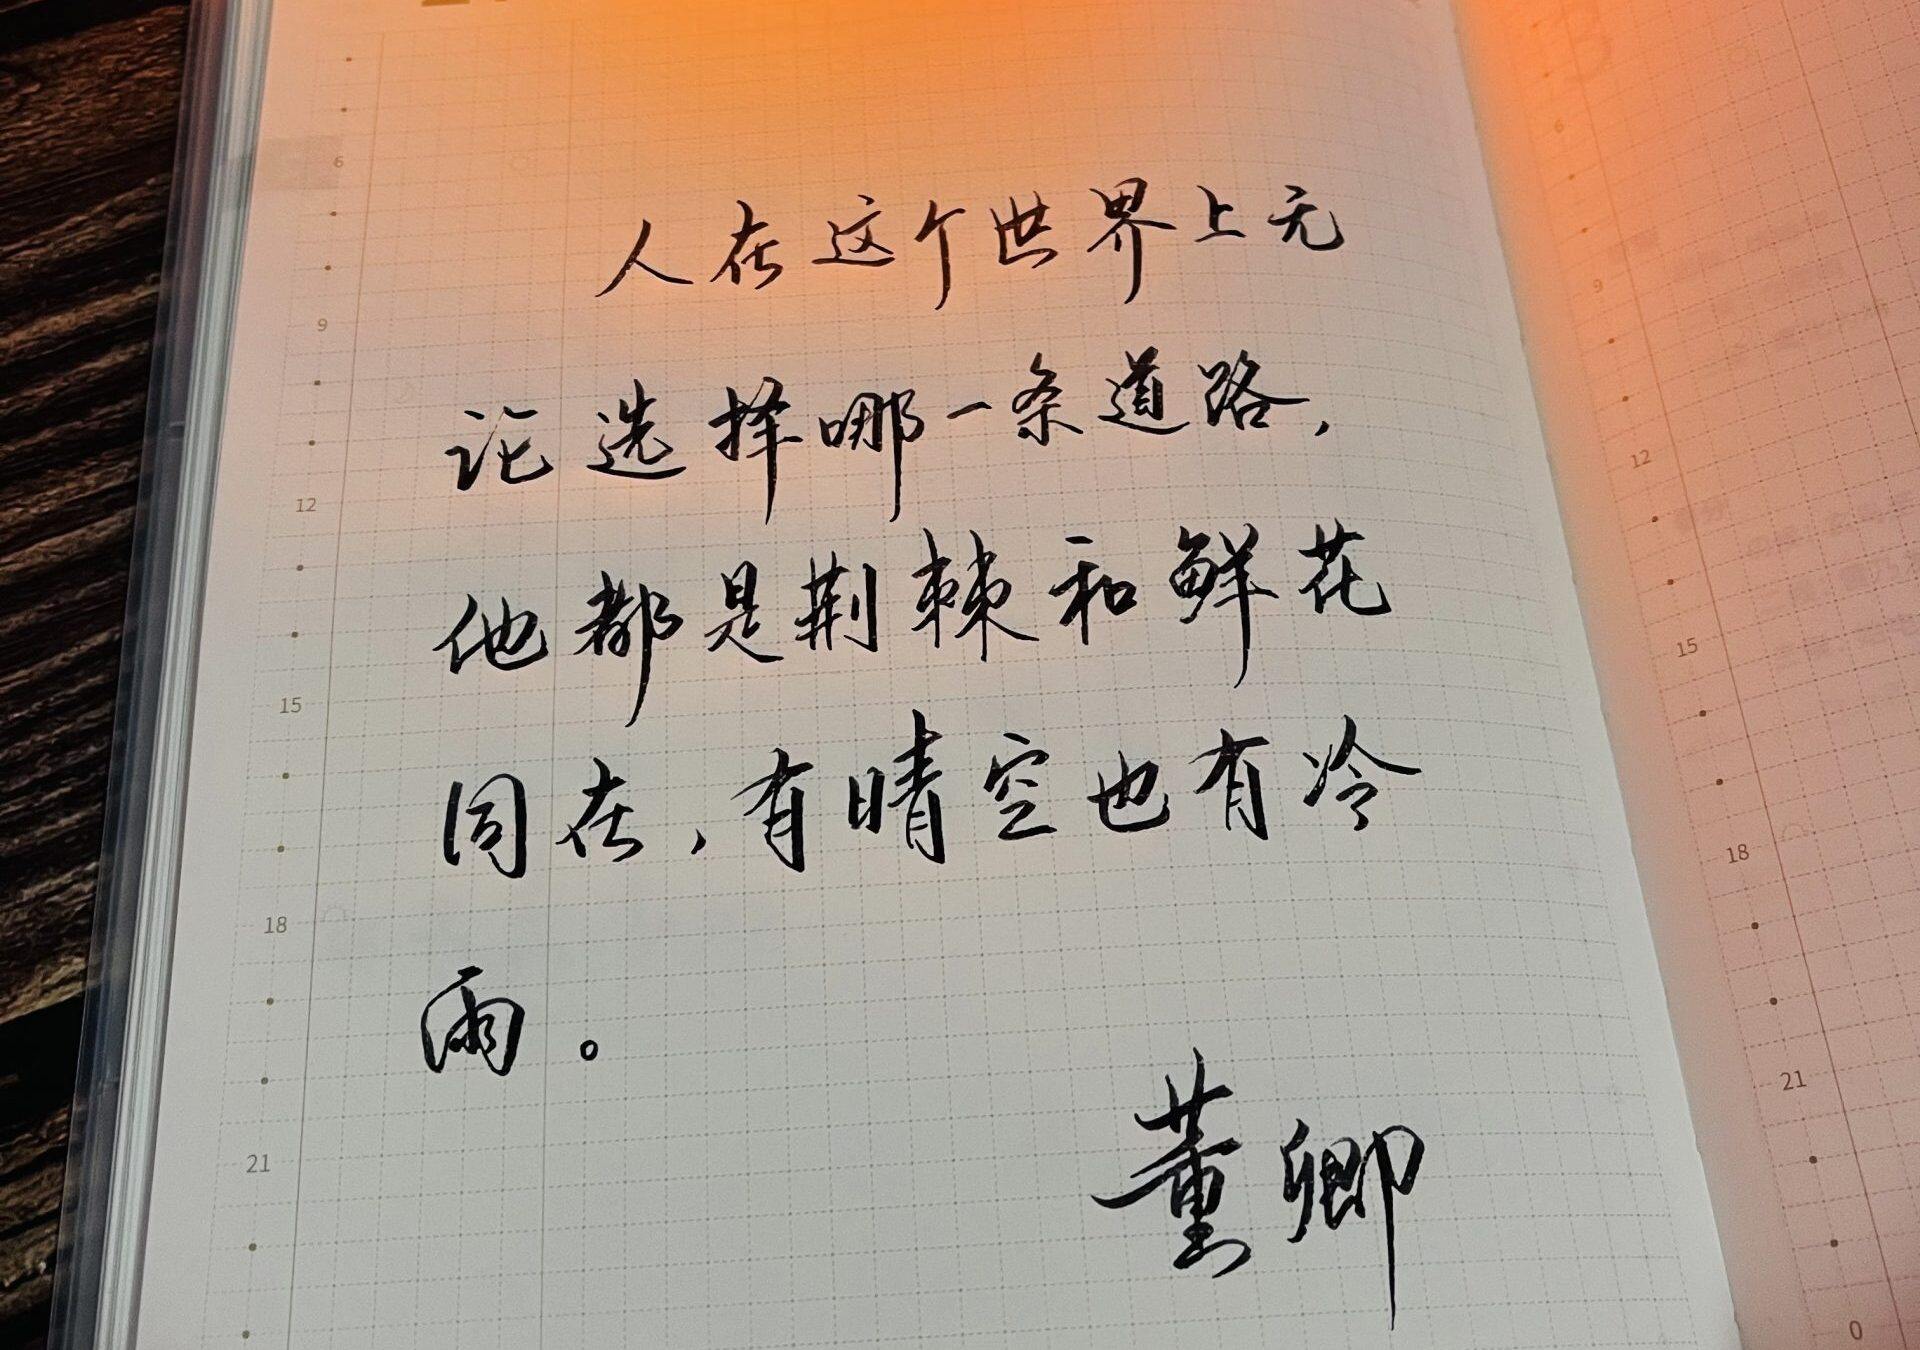 人在这个世界上无
论选择哪一条道路，
他都是荆棘和鲜花
同在，有晴空也有冷
雨。
董卿
6
9
12
15
18
21
6
9
12
15
18
21
0